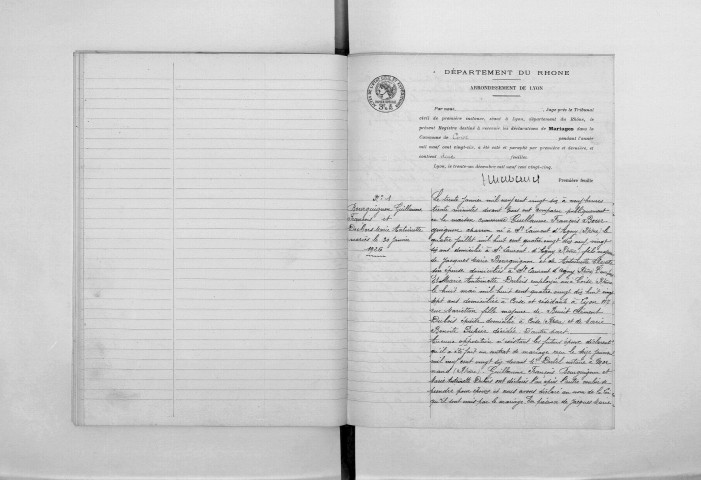 DÉPARTEMENT DU RHONE
ARRONDISSEMENT DE LYON
Par nous, Juge près le Tribunal
civil de première instance, séant à Lyon, département du Rhône, le
présent Registre destiné à recevoir les déclarations de Mariages dans la
Commune de pendant l'année
mil neuf cent vingt-six, a été coté et paraphé par première et dernière, et
contient feuilles.
Lyon, le trente-un décembre mil neuf cent vingt-cinq.
Première feuille
N° 1
Bourguignon Guillaume
François et
Dubois Marie Antoinette
mariés le 30 janvier
1926
Le trente janvier mil neuf cent vingt six à neuf heures
trente minutes devant Nous ont comparu publiquement
en la maison commune Guillaume François Bour
guignon charron né à St Laurent d'Agny Rhône le
quatre juillet mil huit cent quatre vingt dix neuf vingt
six ans domicilié à St Laurent d'Agny Rhône fils majeur
de Jacques Marie Bourguignon et de
son épouse domiciliés à St Laurent d'Agny Rhône
Et Marie Antoinette Dubois employée née
le huit mai mil huit cent quatre vingt dix huit vingt
sept ans domiciliée à et résidante à Lyon
rue Marietton fille majeure de Benoit
Dubois domicilié à Rhône et de Marie
Benoite décédée D'autre part
Aucune opposition n'existant les futurs époux déclarent
qu'il a été fait un contrat de mariage reçu le janvier
mil neuf cent vingt six devant Me notaire à Mor
nant (Rhône) Guillaume François Bourguignon et
Marie Antoinette Dubois ont déclaré l'un après l'autre vouloir se
prendre pour époux et nous avons déclaré au nom de la loi
qu'ils sont unis par le mariage. En présence de Jacques Marie